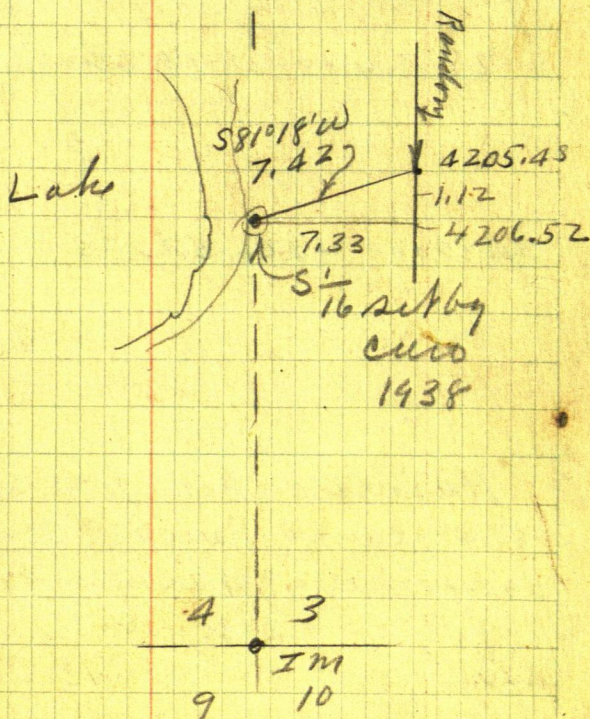 Random
S81°18'W
7.42
4205.43
Lake
1.12
7.33
4206.52
S 1/16 set by
1938
4 3
IM
9 10